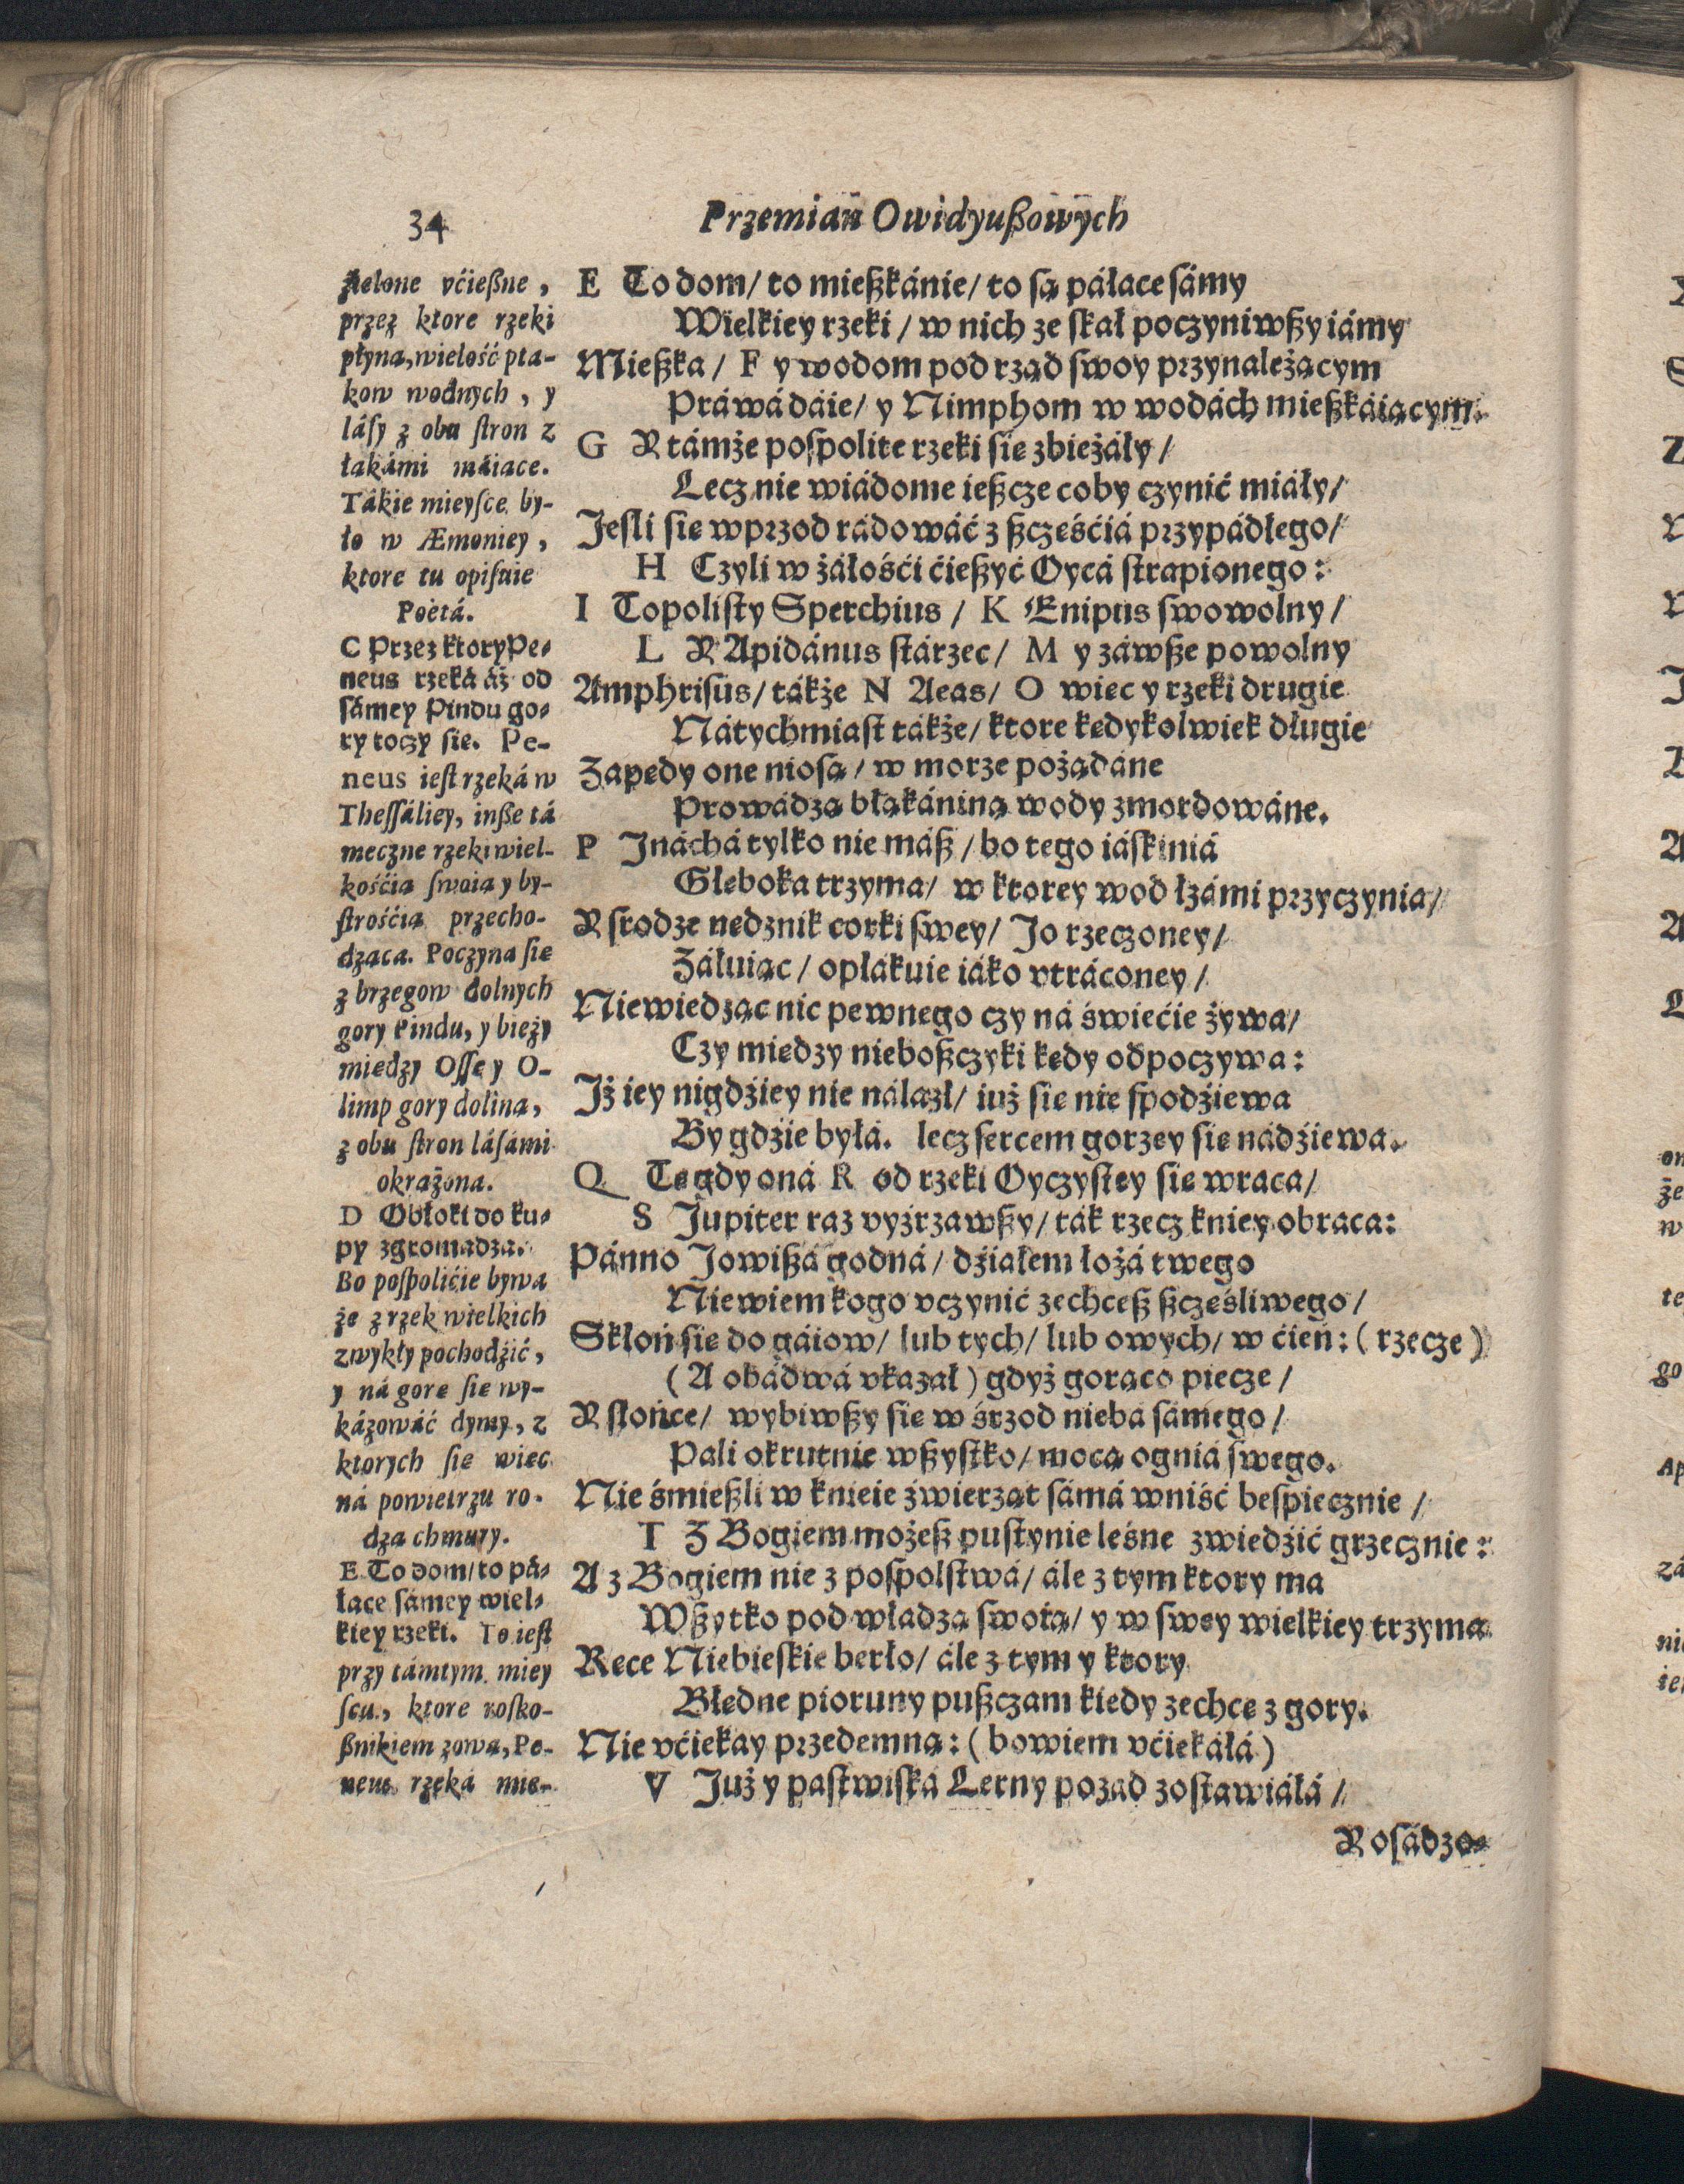 34
Przemian Owidyußowych
zielone vćießne,
przez ktore rzeki
płyna, wielość pta-
kow wodnych, y
lásy z obu stron z
łakámi máiace.
Tákie mieysce by-
ło w Æmoniey,
ktore tu opisuie
Poëtá.
C Przez ktory Pe-
neus rzeká áż od
sámey Pindu go-
ry toczy sie. Pe-
neus iest rzeká w
Thessáliey, inße tá
meczne rzeki wiel-
kośćia swoia y by-
strośćia przecho-
dzaca. Poczyna sie
z brzegow dolnych
gory Pindu, y bieży
miedzy Osse y O-
limp gory dolina,
z obu stron lásámi
okrażona.
D Obłoki do ku-
py zgromadza.
Bo pospolićie bywa
że z rzek wielkich
zwykły pochodźić,
y ná gore sie wy-
kázowáć dymy, z
ktorych sie wiec
ná powietrzu ro-
dza chmury.
E To dom/ to pá-
łace sámey wiel-
kiey rzeki. To iest
przy támtym miey
scu, ktore rosko-
ßnikiem zowa, Pe-
neus rzeká mie-
E To dom/ to mießkánie/ to są páłace sámy
Wielkiey rzeki/ w nich ze skał poczyniwßy iámy
Mießka/ F y wodom pod rząd swoy przynależącym
Práwá dáie/ y Nimphom w wodách mießkáiącym.
G A támże pospolite rzeki sie zbieżáły/
Lecz nie wiádome ießcze coby czynić miáły/
Jesli sie wprzod rádowáć z ßcześćiá przypádłego/
H Czyli w żáłośći ćießyć Oycá strapionego:
I Topolisty Sperchius/ K Enipus swowolny/
L A Apidánus stárzec/ M y záwße powolny
Amphrisus/ tákże N Aeas/ O wiec y rzeki drugie
Nátychmiast tákże/ ktore kędykolwiek długie
Zapędy one niosą/ w morze pożądáne
Prowádzą błąkániną wody zmordowáne.
P Jnáchá tylko nie máß/ bo tego iáskiniá
Głeboka trzyma/ w ktorey wod łzámi przyczynia/
A srodze nędznik corki swey/ Jo rzeczoney/
Záłuiąc/ opłákuie iáko vtráconey/
Niewiedząc nic pewnego czy ná świećie żywa/
Czy miedzy nieboßczyki kędy odpoczywa:
Jż iey nigdźiey nie nálazł/ iuż sie nie spodźiewa
By gdźie byłá. lecz sercem gorzey sie nádźiewa.
Q Tę gdy oná R od rzeki Oyczystey sie wraca/
S Jupiter raz vyźrzawßy/ ták rzecz kniey obraca:
Pánno Jowißá godná/ dźiałem łożá twego
Niewiem kogo vczynić zechceß ßcześliwego/
Skłoń sie do gáiow/ lub tych/ lub owych/ w ćień: (rzecze)
(A obádwá vkazał) gdyż gorąco piecze/
A słońce/ wybiwßy sie w śrzod niebá sámego/
Pali okrutnie wßystko/ mocą ogniá swego.
Nie śmießli w knieie źwierząt sámá wniść bespiecznie/
T Z Bogiem możeß pustynie leśne zwiedźić grzecznie:
A z Bogiem nie z pospolstwá/ ále z tym ktory ma
Wßytko pod władzą swoią/ y w swey wielkiey trzyma
Ręce Niebieskie berło/ ále z tym y ktory
Błędne pioruny pußczam kiedy zechcę z gory.
Nie vćiekay przedemną: (bowiem vćiekáłá)
V Już y pastwiská Lerny pozad zostawiáłá/
A osádzo-